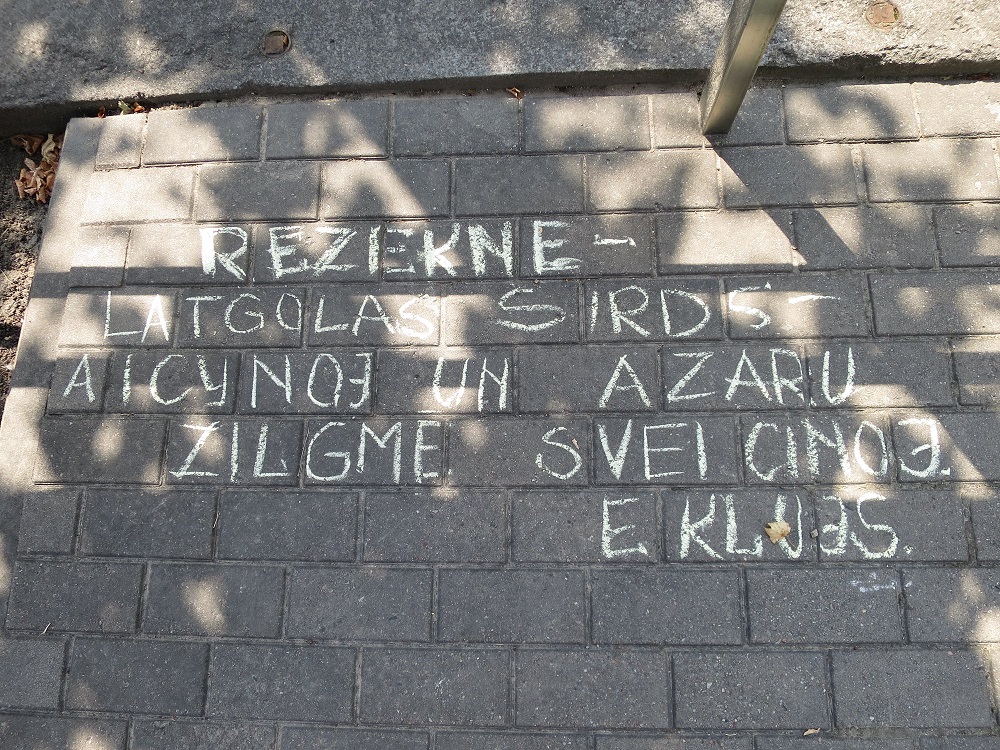 REZEKNE –
LATGOLAS SIRDS –
AICYNOJ UN AZARU
ZILGME SVEICINOJ.
E KLUJS.